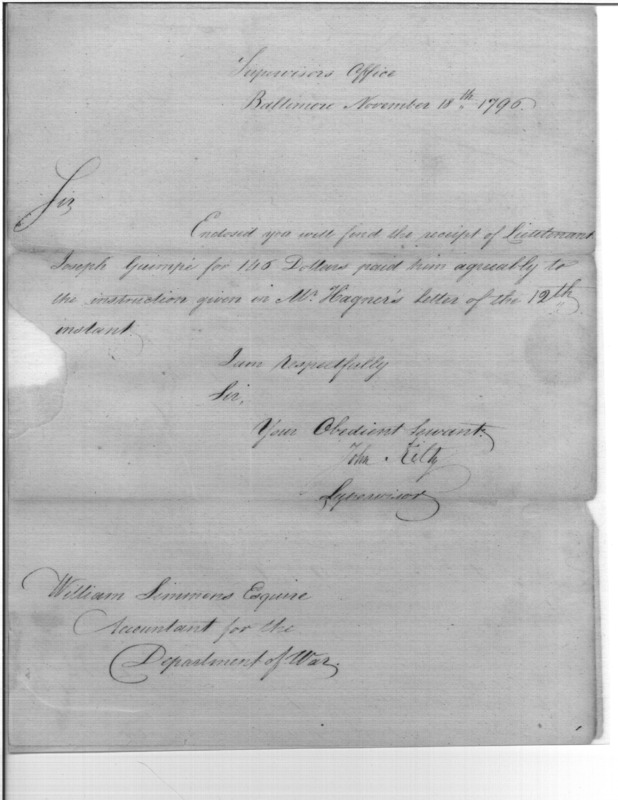 Supervisors Office
Baltimore November 18th 1796.
Sir
Enclosed you will find the receipt of Lieutenant
Joseph for 146 Dollars paid him agreeably to
the instruction given in Mr Hagner's letter of the 12th
instant.
I am Respectfully
Sir,
Your Obedient Servant.
John Kilty
Supervisor
William Simmons Esquire
Accountant for the
Department of War.